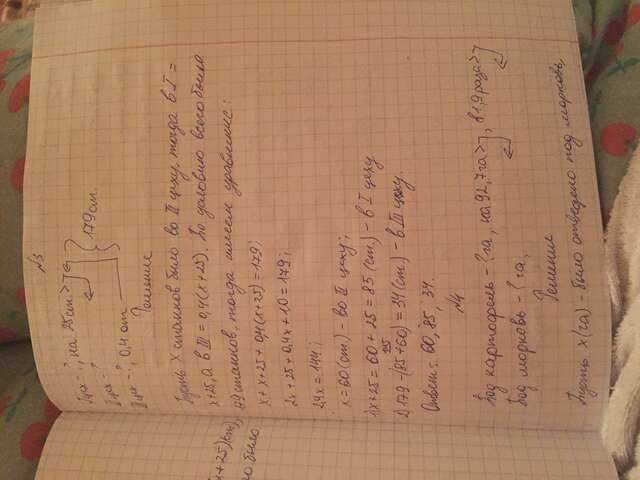 N3
I цех - ?, на 25 ст. > }
II цех - ? } 179 ст.
III цех - ?, 0,4 от
Решение
Пусть x станков было во II цеху, тогда в I =
x+25, а в III = 0,4(x+25). По условию всего было
179 станков, тогда имеем уравнение:
x+x+25+0,4(x+25)=179;
2x+25+0,4x+10=179;
2,4x=144;
x=60(ст.) - во II цеху;
1) x+25=60+25=85(ст.) - в I цеху
2) 179-(85+60)=34(ст.) - в III цеху.
Ответ: 60, 85, 34.
N4
Под картофель - ? га, на 92,7 га >, в 1,9 раза >
Под морковь - ? га,
Решение
Пусть x(га) - было отведено под морковь,
x+25)(ст)
было